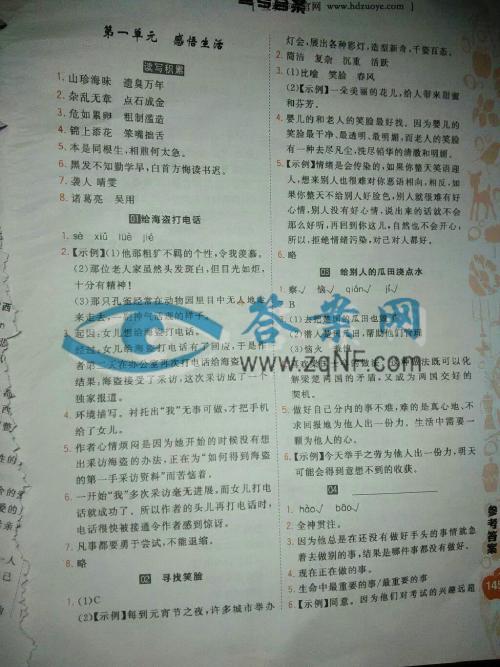 www.hdzuoye.com
第一单元 感悟生活
读写积累
1. 山珍海味 遗臭万年
2. 杂乱无章 点石成金
3. 危如累卵 粗制滥造
4. 锦上添花 笨嘴拙舌
5. 本是同根生,相煎何太急。
6. 黑发不知勤学早,白首方悔读书迟。
7. 袭人 晴雯
8. 诸葛亮 吴用
01 给海盗打电话
1. sè xiū lüè jié
2.【示例】(1)他那粗犷不羁的个性,令我羡慕。
(2)那位老人家虽然头发斑白,但目光如炬,
十分有精神!
(3)那只孔雀经常在动物园里目中无人地走
来走去。
3. 起因:女儿想给海盗打电话。
经过:女儿给海盗打电话有了回应,于是作
者第二天在办公室再次打电话给海盗。
结果:海盗接受了采访,这次采访成了一个
独家报道。
4. 环境描写。衬托出“我”无事可做,才把手机
给了女儿。
5. 作者心情烦闷是因为她开始的时候没有想
出采访海盗的办法,正在为“如何得到海盗
的第一手采访资料”而苦恼着。
6. 一开始“我”多次采访毫无进展,而女儿打电
话就成功了。所以作者的头儿再打电话时,
电话很快被接通令作者感到惊讶。
7. 凡事都要勇于尝试,不能退缩。
8. 略
02 寻找笑脸
1. (1)C
(2)【示例】每到元宵节之夜,许多城市举办
灯会,展出各种彩灯,造型新奇,千姿百态。
2. 简洁 复杂 沉重 活跃
3. (1)比喻 笑脸 春风
(2)【示例】一朵美丽的花儿,给人带来甜蜜
和芬芳。
4. 婴儿的和老人的笑脸最好找。因为婴儿的
笑脸最干净、最透明、最明媚,而老人的笑脸
有一种去尽凡尘、洗尽铅华的清澈和明媚。
5.【示例】情绪是会传染的,如果你整天笑语迎
人,想来别人也很难对你恶语相向,相反,如
果你整天不给别人好脸色,别人就很难有好
心情,别人没有好心情,说出来的话就不会
那么好听,再回到你这里,自然也不会开心,
所以,拒绝情绪污染,对己对人都好。
6. 略
03 给别人的瓜田浇点水
1. 察√ 恼√ qián√ jǐ√
2. B
3. (1)去把楚国的瓜田也毁了
(2)潜入楚国瓜田,帮助他们
(3)恼火 我惭
4. 喜欢
解梁楚两国的矛盾,又成为两国交好的
契机。
5. 做好自己分内的事不难,难的是真心地、不
求回报地为他人出一份力。生活中要做一
个为他人的心。
6.【示例】今天举手之劳为他人出一份力,明天
可能会得到意想不到的收获。
04
1. hǎo√ bāo√
2. 全神贯注。
3. 因为他总是在还没有做好手头的事情就急
着去做别的事,结果是哪件事都没有做好。
4. 现在正在做的事。
5. 生命中最重要的事/最重要的事
6.【示例】同意。因为他们对考试的兴趣远超
参考答案
145
答案网
www.zqnf.com